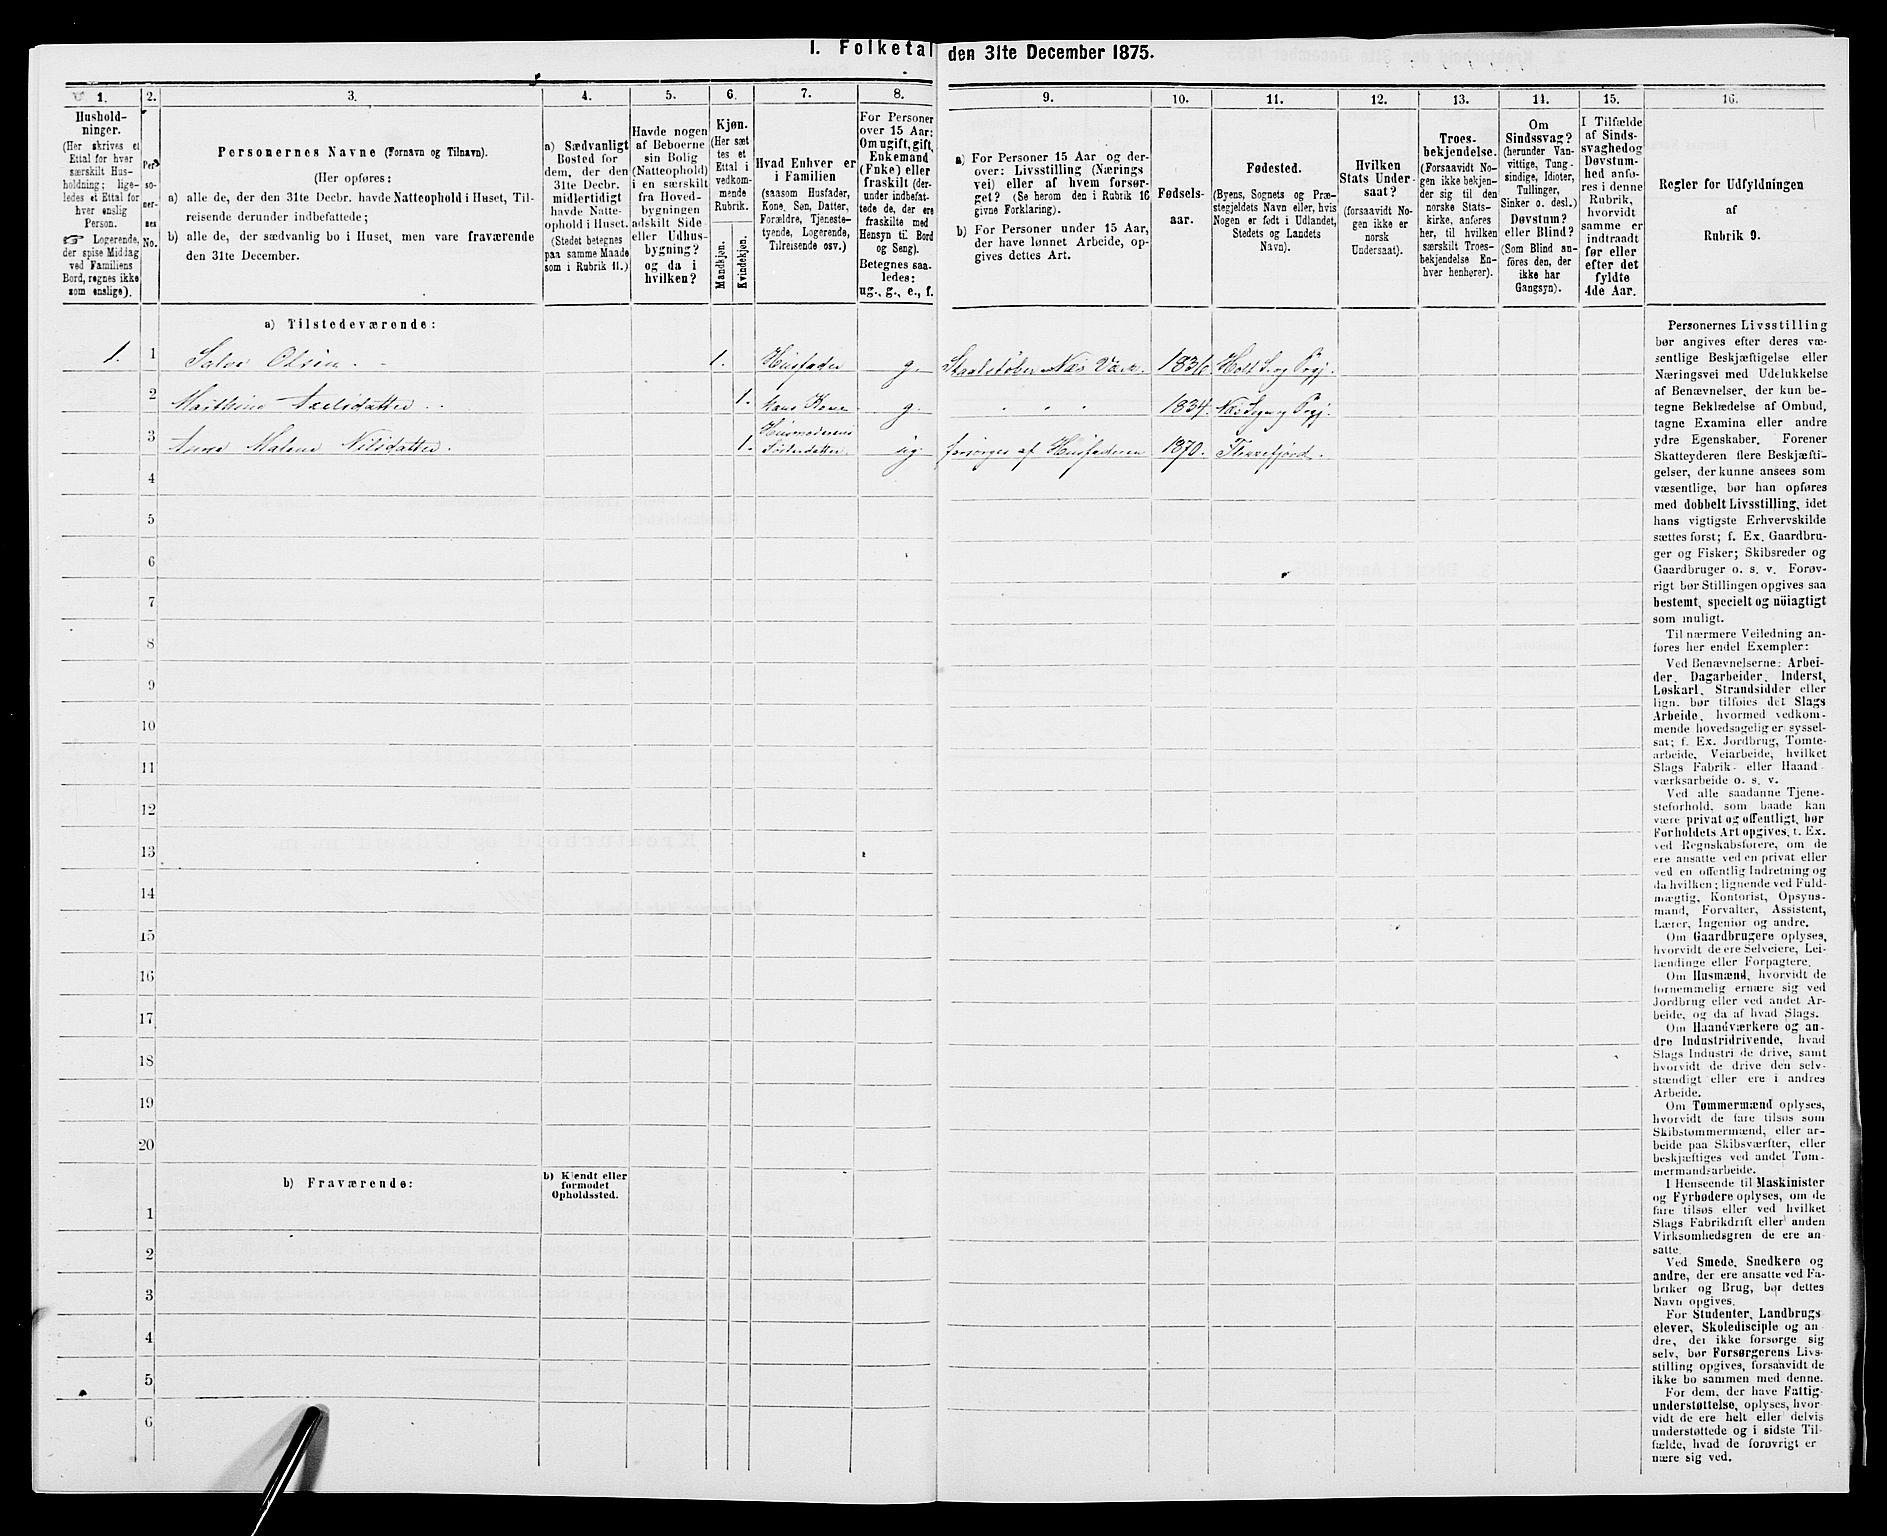 I. Folketal den 31te December 1875.
1. 2. 3. 4. 5. 6. 7. 8. 9. 10. 11. 12. 13. 14. 15. 16.
Hushold-
ninger.
(Her skrives et
Ettal for hver
særskilt Hus-
holdning; lige-
ledes et Ettal for
hver enslig
Person.
☞ Logerende,
der spise Middag
ved Familiens
Bord, regnes ikke
som enslige).
Per-
so-
ner-
nes
No.
Personernes Navne (Fornavn og Tilnavn).
(Her opføres:
a) alle de, der den 31te Decbr. havde Natteophold i Huset, Til-
reisende derunder indbefattede;
b) alle de, der sædvanlig bo i Huset, men vare fraværende
den 31te December.
a) Sædvanligt
Bosted for
dem, der den
31te Decbr.
midlertidigt
havde Natte-
ophold i Huset.
(Stedet betegnes
paa samme Maade
som i Rubrik 11.)
Havde nogen
af Beboerne
sin Bolig
(Natteophold)
i en særskilt
fra Hoved-
bygningen
adskilt Side-
eller Udhus-
bygning?
og da i
hvilken?
Kjøn.
(Her sæt
tes et
Ettal i
vedkom-
mende
Rubrik.
Mandkjøn.
Kvindekjøn.
Hvad Enhver er
i Familien
(saasom Husfader,
Kone, Søn, Datter,
Forældre, Tjeneste-
tyende, Logerende,
Tilreisende osv.)
For Personer
over 15 Aar:
Om ugift, gift,
Enkemand
(Enke) eller
fraskilt (der-
under indbefat-
tede de, der ere
fraskilte med
Hensyn til Bord
og Seng).
Betegnes saa-
ledes:
ug., g., e., f.
a) For Personer 15 Aar og der-
over: Livsstilling (Nærings
vei) eller af hvem forsør-
get? (Se herom den i Rubrik 16
givne Forklaring).
b) For Personer under 15 Aar,
der have lønnet Arbeide, op-
gives dettes Art.
Fødsels-
aar.
Fødested.
(Byens, Sognets og Præ-
stegjeldets Navn eller, hvis
Nogen er født i Udlandet,
Stedets og Landets
Navn).
Hvilken
Stats Under-
saat?
(forsaavidt No-
gen ikke er
norsk
Undersaat).
Troes-
bekjendelse.
(Forsaavidt No-
gen ikke bekjen-
der sig til den
norske Stats-
kirke, anføres
her, til hvilken
særskilt Troes-
bekjendelse En-
hver henhører).
Om
Sindssvag?
(herunder Van-
vittige, Tung-
sindige, Idioter,
Tullinger,
Sinker o. desl.)
Døvstum?
eller Blind?
(Som Blind an-
føres den, der
ikke har
Gangsyn).
I Tilfælde
af Sinds-
svaghed og
Døvstum-
hed anfø-
res i denne
Rubrik,
hvorvidt
samme er
indtraadt
før eller
efter det
fyldte
4de Aar.
Regler for Udfyldningen
af
Rubrik 9.
a) Tilstedeværende:
1. 1 Salve Olsen 1. Husfader g. Staalstøber Næs Værk. 1836. Holt S. og Prgj.
2 Marthine Axelsdatter 1. hans Kone g. " " 1834. Næs Sogn og Prgj.
3 Anne Malene Nilsdatter. 1. Husmoderens Søsterdatter ug. forsørges af Husfaderen 1870. Flosefjord.
4
5
6
7
8
9
10
11
12
13
14
15
16
17
18
19
20
b) Fraværende:
b) Kjendt eller
formodet
Opholdssted.
1
2
3
4
5
6
Personernes Livsstilling
bør angives efter deres væ-
sentlige Beskjæftigelse eller
Næringsvei med Udelukkelse
af Benævnelser, der kun be-
tegne Beklædelse af Ombud,
tagne Examina eller andre
ydre Egenskaber. Forener
Skatteyderen flere Beskjæfti-
gelser, der kunne ansees som
væsentlige, bør han opføres
med dobbelt Livsstilling, idet
hans vigtigste Erhvervskilde
sættes først; f. Ex. Gaardbru-
ger og Fisker; Skibsreder og
Gaardbruger o. s. v. Forøv-
rigt bør Stillingen opgives saa
bestemt, specielt og nöiagtigt
som muligt.
Til nærmere Veiledning an-
føres her endel Exempler:
Ved Benævnelserne: Arbei-
der, Dagarbeider, Inderst,
Løskarl, Strandsidder eller
lign. bør tilføies det Slags
Arbeide, hvormed vedkom-
mende hovedsagelig er syssel-
sat; f. Ex. Jordbrug, Tomte-
arbeide, Veiarbeide, hvilket
Slags Fabrik- eller Haand-
værksarbeide o. s. v.
Ved alle saadanne Tjene-
steforhold, som baade kan
være privat og offentligt, bør
Forholdets Art opgives, t. Ex.
ved Regnskabsførere, om de
ere ansatte ved en privat eller
ved en offentlig Indretning og
da hvilken; lignende ved Fuld-
mægtig, Kontorist, Opsyns-
mand, Forvalter, Assistent,
Lærer, Ingeniør og andre.
Om Gaardbrugere oplyses,
hvorvidt de ere Selveiere, Lei-
lændinge eller Forpagtere.
Om Husmænd, hvorvidt de
fornemmelig ernære sig ved
Jordbrug eller ved andet Ar-
beide, og da af hvad Slags.
Om Haandværkere og an-
dre Industridrivende, hvad
Slags Industri de drive, samt
hvorvidt de drive den selv-
stændigt eller ere i andres
Arbeide.
Om Tømmermænd oplyses,
hvorvidt de fare tilsøs som
Skibstømmermænd, eller ar-
beide paa Skibsværfter, eller
beskjæftiges ved andet Tøm-
mermandsarbeide.
I Henseende til Maskinister
og Fyrbødere oplyses, om de
fare tilsøs eller ved hvilket
Slags Fabrikdrift eller anden
Virksomhedsgren de ere an-
satte.
Ved Smede, Snedkere og
andre, der ere ansatte ved Fa-
briker og Brug, bør dettes
Navn opgives.
For Studenter, Landbrugs
elever, Skoledisciple og an
dre, der ikke forsørge sig
selv, bør Forsørgerens Livs-
stilling opgives, forsaavidt de
ikke bo sammen med denne.
For dem, der have Fattig-
understøttelse, oplyses, hvor-
vidt de ere helt eller delvis
understøttede og i sidste Til-
fælde, hvad de forøvrigt er
nære sig ved.